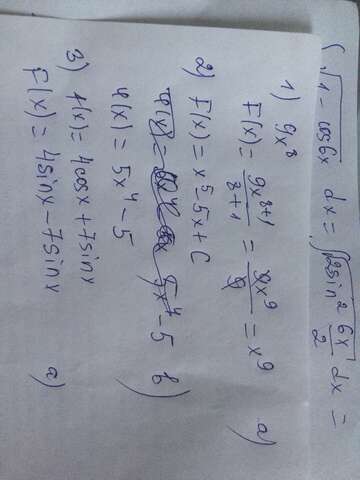 ∫ √(1 - cos6x) dx = ∫ √(2sin² 6x/2) dx =
1) 9x⁸
F(x) = 9x⁸⁺¹/8+1 = 9x⁹/9 = x⁹ a)
2) F(x) = x⁵ - 5x + C
5x⁴ - 5 b)
φ(x) = 5x⁴ - 5
3) f(x) = 4cosx + 7sinx
F(x) = 4sinx - 7sinx a)